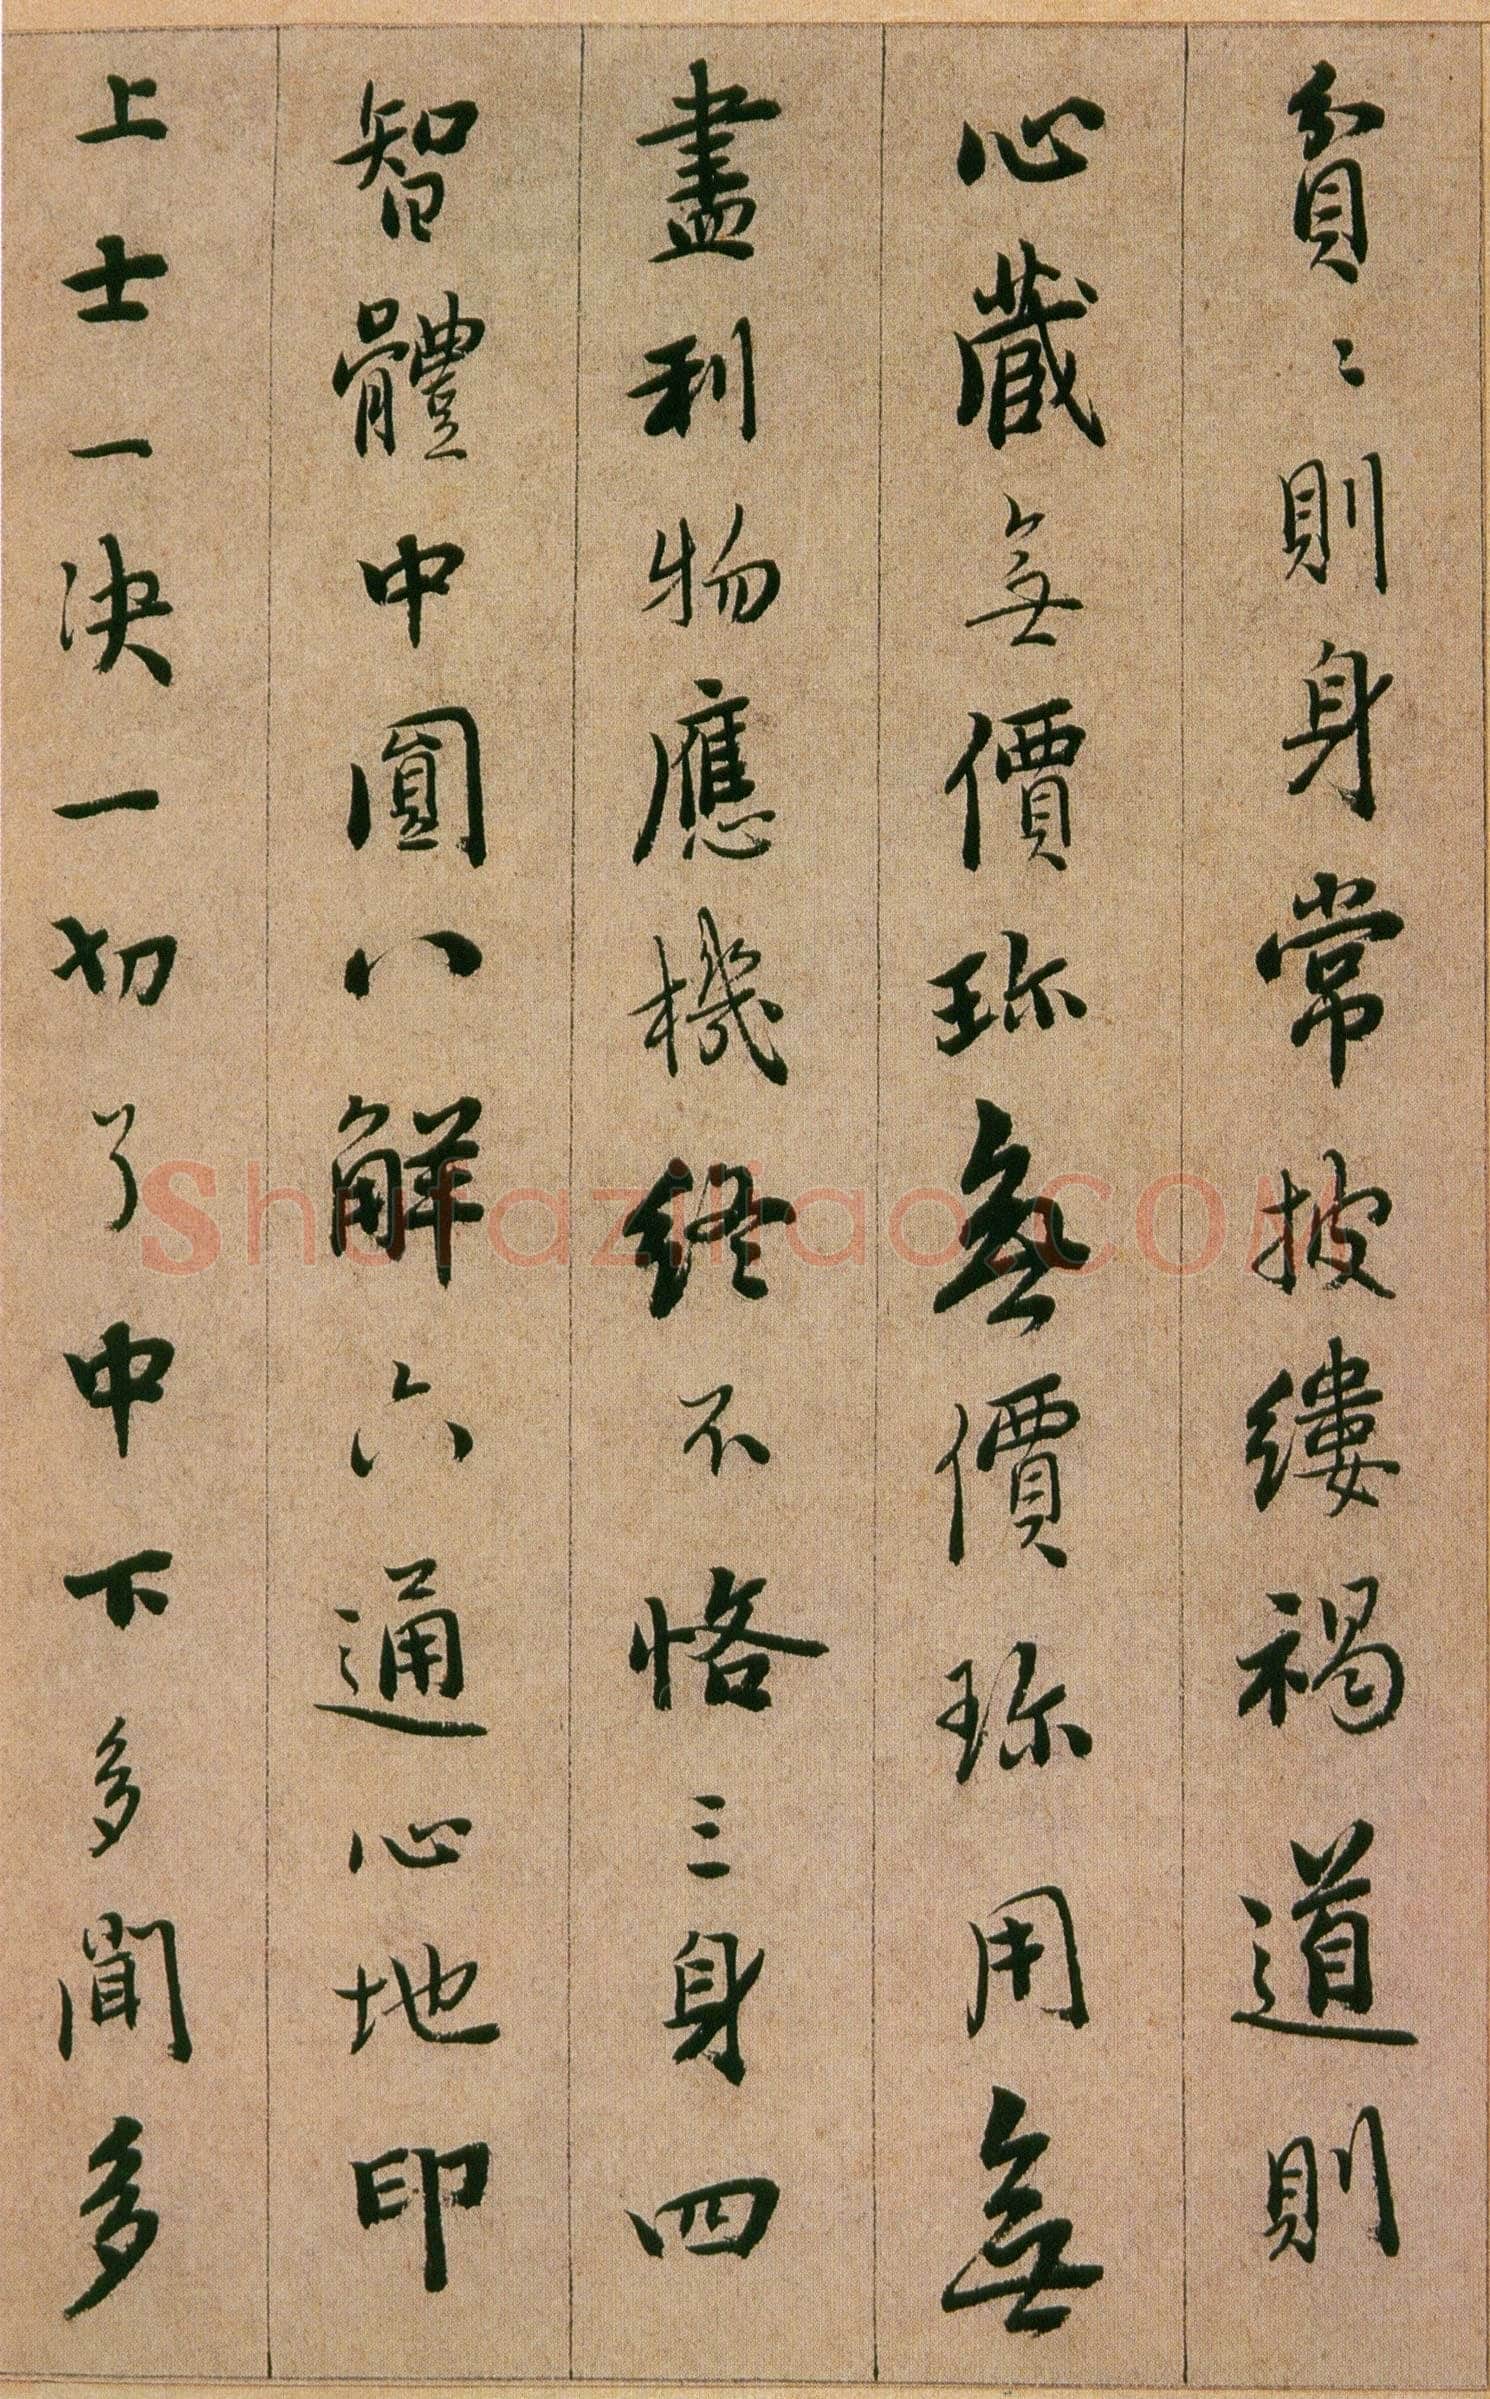 貧〻則身常披縷褐道則
心藏無價珎無價珎用無
盡利物應機終不悋三身四
智體中圓八解六通心地印
上士一決一切了中下多聞多
Shufaziliao.COM